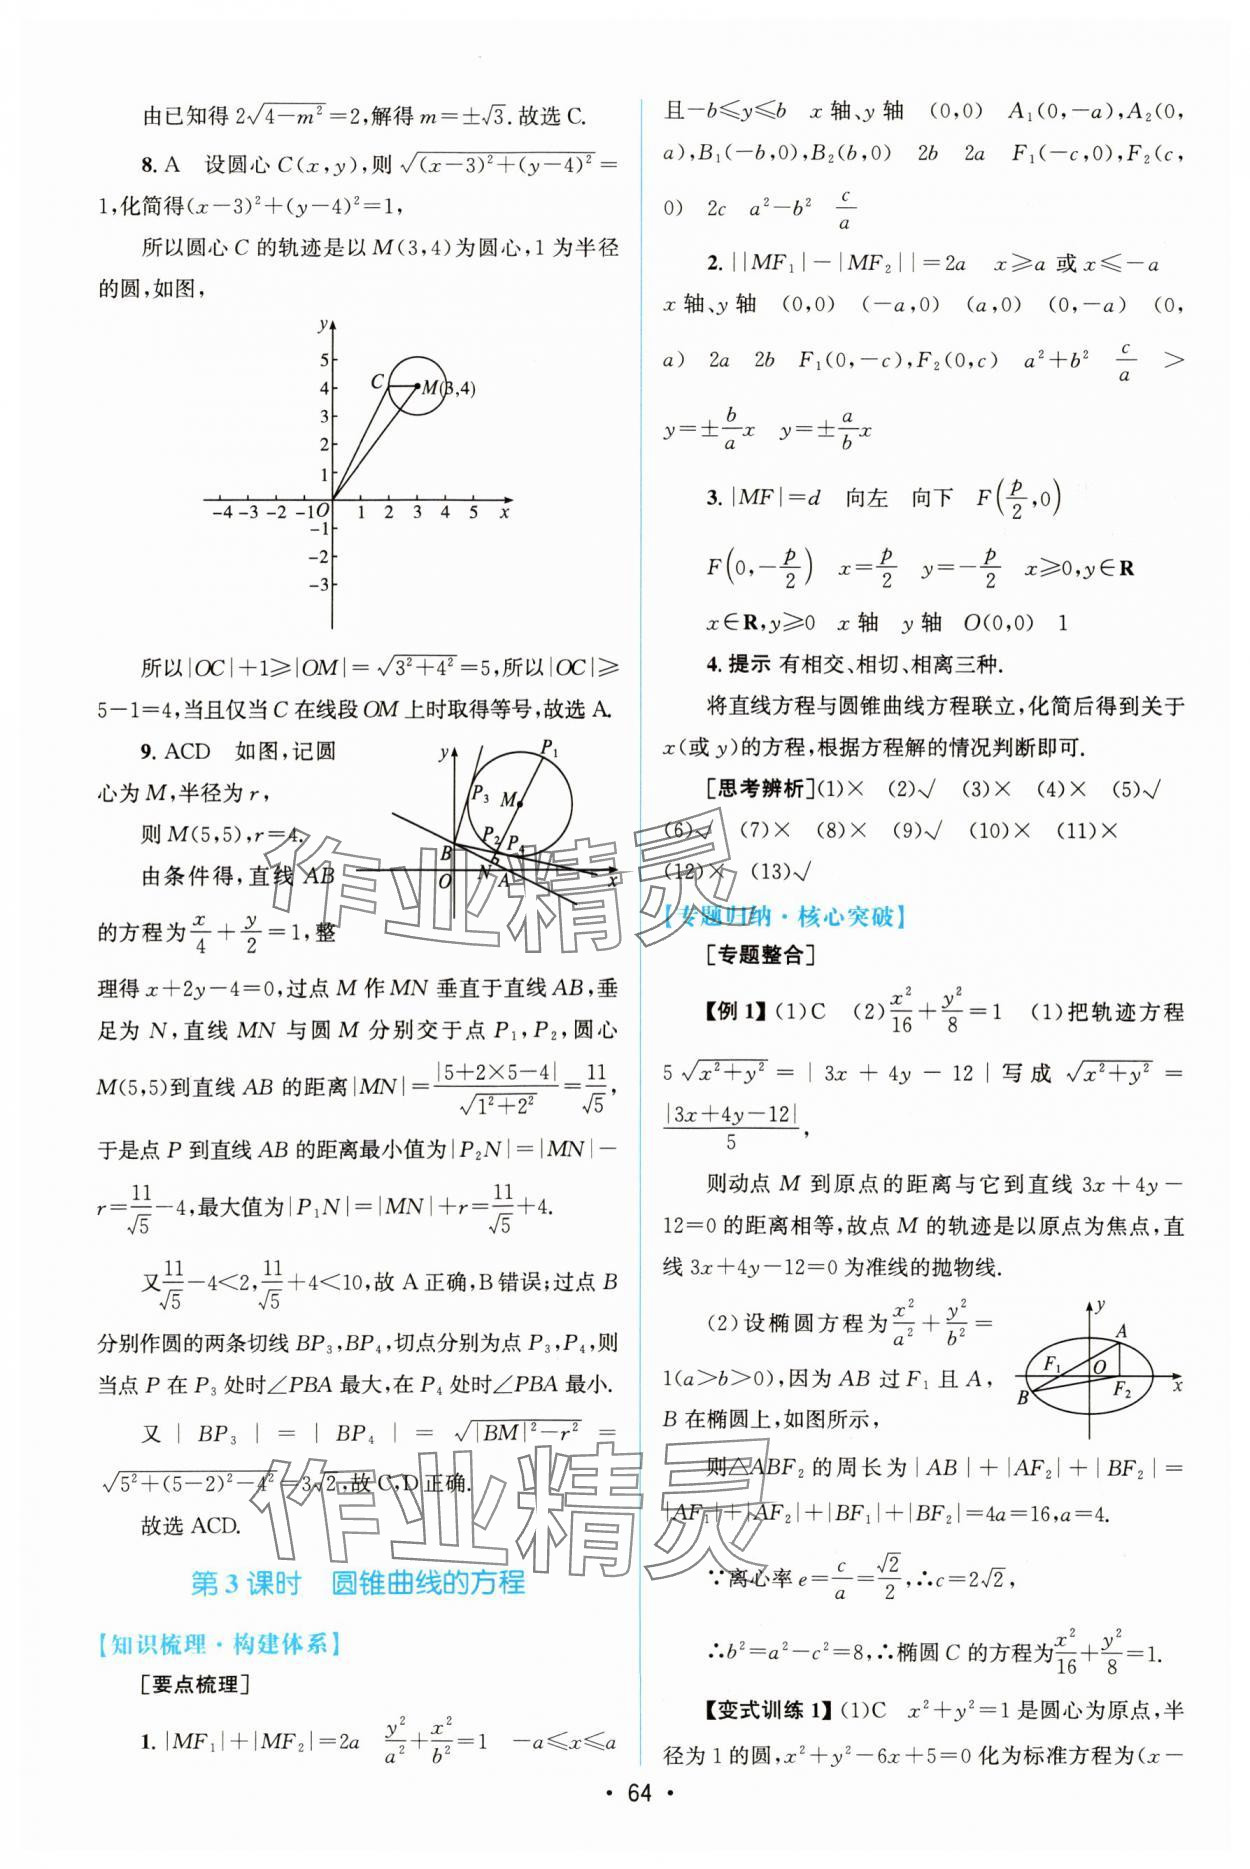 由已知得 2√(4－m²)＝2,解得 m＝±√3.故选 C.
8. A　设圆心 C(x,y),则 √((x－3)²＋(y－4)²)＝
1,化简得(x－3)²＋(y－4)²＝1,
所以圆心 C 的轨迹是以 M(3,4)为圆心,1 为半径
的圆,如图,
y
5
4
3
2
1
C
M(3,4)
－4 －3 －2 －1 O 1 2 3 4 5 x
－1
－2
－3
所以|OC|＋1≥|OM|＝√(3²＋4²)＝5,所以|OC|≥
5－1＝4,当且仅当 C 在线段 OM 上时取得等号,故选 A.
9. ACD　如图,记圆
心为 M,半径为 r,
则 M(5,5),r＝4.
由条件得,直线 AB
的方程为 x/4＋y/2＝1,整
y P₁ P₃ M P₂ P₄ B O N A x
理得 x＋2y－4＝0,过点 M 作 MN 垂直于直线 AB,垂
足为 N,直线 MN 与圆 M 分别交于点 P₁,P₂,圆心
M(5,5)到直线 AB 的距离|MN|＝|5＋2×5－4|/√(1²＋2²)＝11/√5,
于是点 P 到直线 AB 的距离最小值为|P₂N|＝|MN|－
r＝11/√5－4,最大值为|P₁N|＝|MN|＋r＝11/√5＋4.
又11/√5－4＜2,11/√5＋4＜10,故 A 正确,B 错误;过点 B
分别作圆的两条切线 BP₃,BP₄,切点分别为点 P₃,P₄,则
当点 P 在 P₃ 处时∠PBA 最大,在 P₄ 处时∠PBA 最小.
又 | BP₃ | ＝ | BP₄ | ＝ √(|BM|²－r²) ＝
√(5²＋(5－2)²－4²)＝3√2,故 C,D 正确.
故选 ACD.
第 3 课时　圆锥曲线的方程
【知识梳理·构建体系】
[要点梳理]
1. |MF₁|＋|MF₂|＝2a　y²/a²＋x²/b²＝1　－a≤x≤a
且－b≤y≤b　x 轴、y 轴　(0,0)　A₁(0,－a),A₂(0,
a),B₁(－b,0),B₂(b,0)　2b　2a　F₁(－c,0),F₂(c,
0)　2c　a²－b²　c/a
2. ||MF₁|－|MF₂||＝2a　x≥a 或 x≤－a
x 轴、y 轴　(0,0)　(－a,0)　(a,0)　(0,－a)　(0,
a)　2a　2b　F₁(0,－c),F₂(0,c)　a²＋b²　c/a　＞
y＝±b/a x　y＝±a/b x
3. |MF|＝d　向左　向下　F(p/2,0)
F(0,－p/2)　x＝p/2　y＝－p/2　x≥0,y∈R
x∈R,y≥0　x 轴　y 轴　O(0,0)　1
4. 提示 有相交、相切、相离三种.
将直线方程与圆锥曲线方程联立,化简后得到关于
x(或 y)的方程,根据方程解的情况判断即可.
[思考辨析](1)×　(2)√　(3)×　(4)×　(5)√
(6)√　(7)×　(8)×　(9)√　(10)×　(11)×
(12)×　(13)√
【专题归纳·核心突破】
[专题整合]
【例 1】(1)C　(2)x²/16＋y²/8＝1　(1)把轨迹方程
5 √(x²＋y²) ＝ | 3x ＋ 4y － 12 | 写成 √(x²＋y²) ＝
|3x＋4y－12|/5,
则动点 M 到原点的距离与它到直线 3x＋4y－
12＝0 的距离相等,故点 M 的轨迹是以原点为焦点,直
线 3x＋4y－12＝0 为准线的抛物线.
(2)设椭圆方程为x²/a²＋y²/b²＝
1(a＞b＞0),因为 AB 过 F₁ 且 A,
B 在椭圆上,如图所示,
y A F₁ O F₂ x B
则△ABF₂ 的周长为|AB|＋|AF₂|＋|BF₂|＝
|AF₁|＋|AF₂|＋|BF₁|＋|BF₂|＝4a＝16,a＝4.
∵离心率 e＝c/a＝√2/2,∴c＝2√2,
∴b²＝a²－c²＝8,∴椭圆 C 的方程为x²/16＋y²/8＝1.
【变式训练 1】(1)C　x²＋y²＝1 是圆心为原点,半
径为 1 的圆,x²＋y²－6x＋5＝0 化为标准方程为(x－
· 64 ·
作业精灵
作业精灵